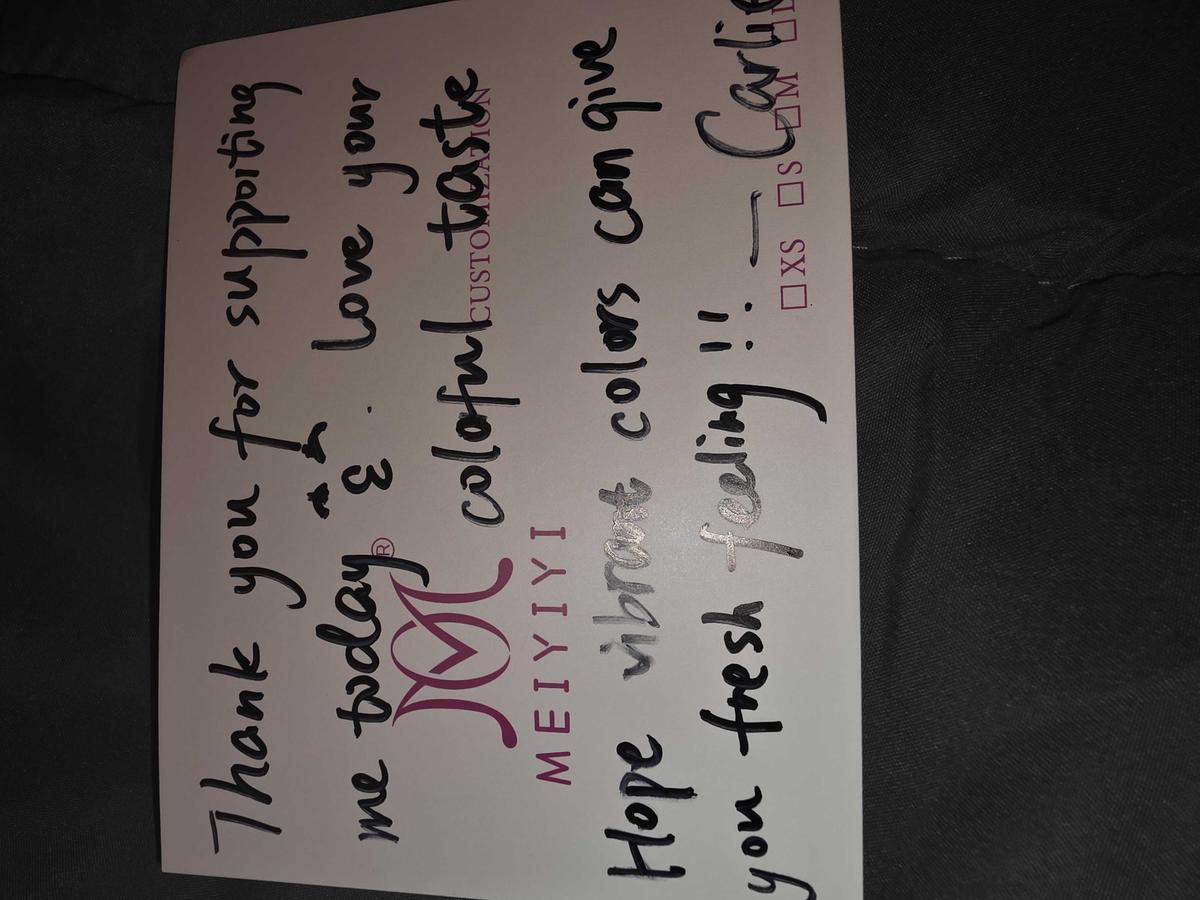 Thank you for supporting
me today ε. Love your
® colorful taste
CUSTOMIZATION
MEIYIYI
Hope vibrant colors can give
you fresh feeling!! — Carlie
XS S M